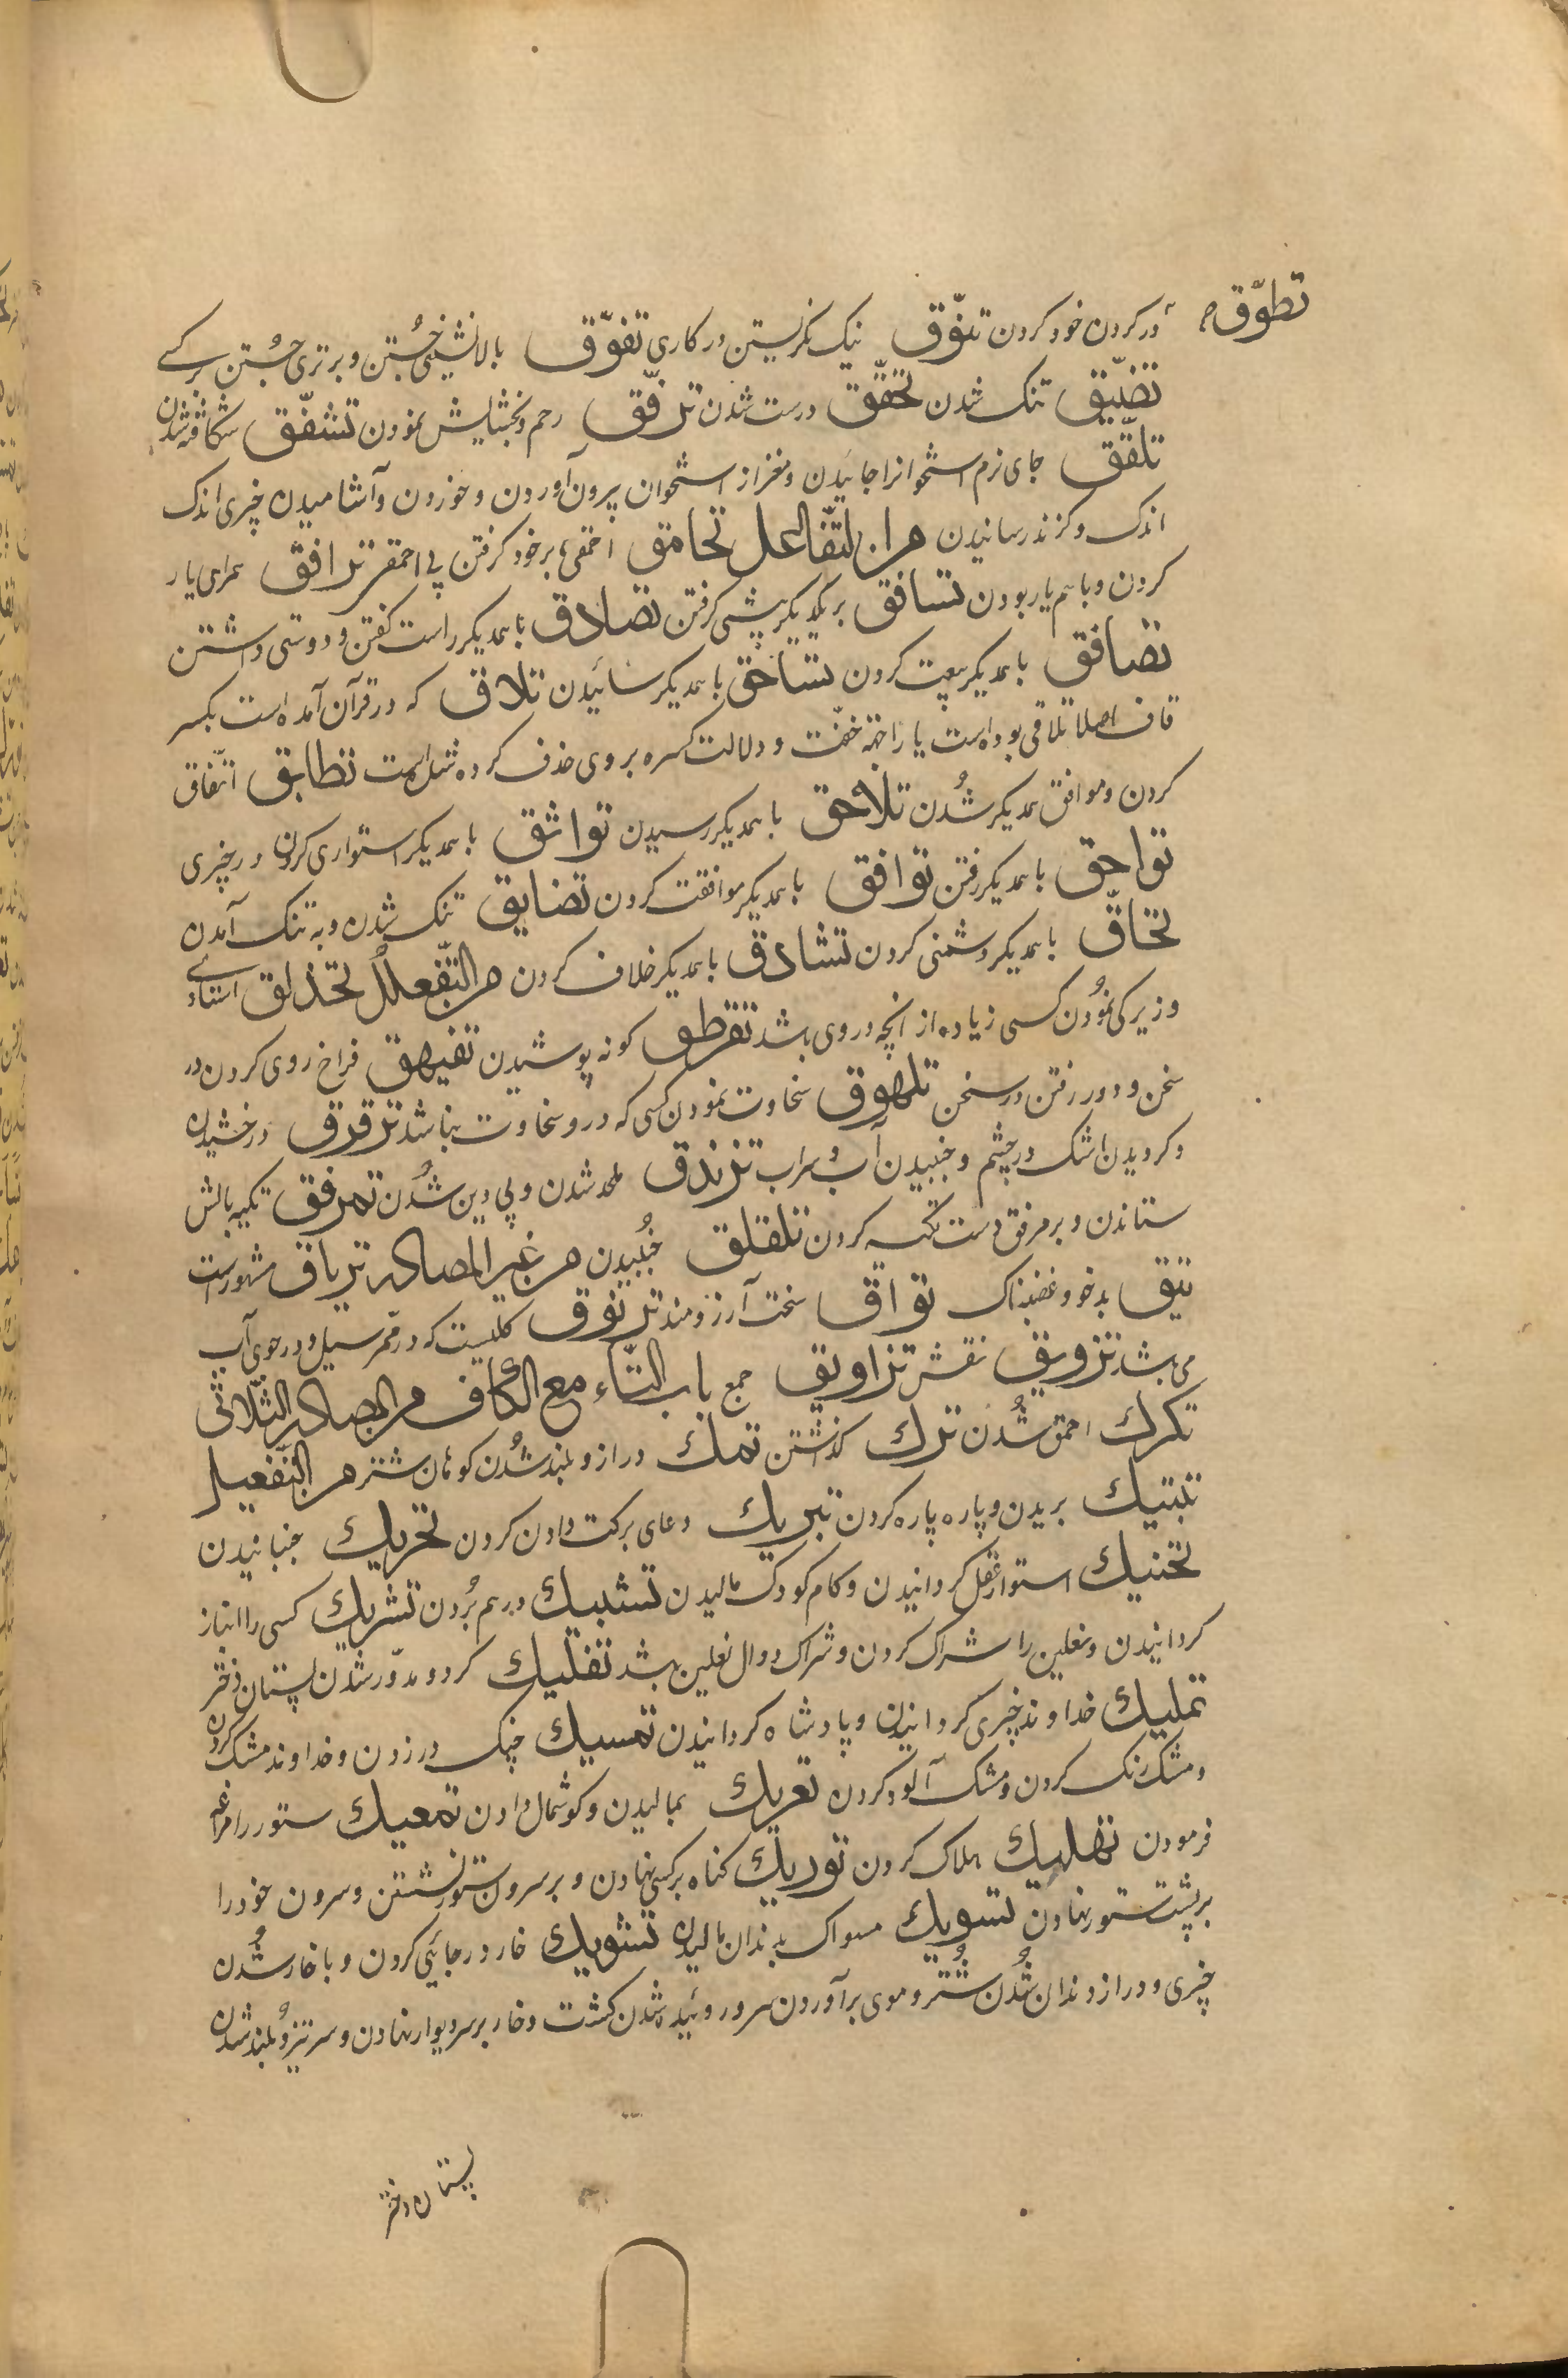 تطوّق
در کردن خود کردن تنوّق نیک نکریستن در کاری تفوّق بالانشینی جُستن و برتری جُستن بر کسے
تضیّق تنک شدن تحقّق درست شدن ترفّق رحم و بخشایش نمودن تشقّق شکافته شدن
جای نرم استخوانرا خائیدن و مغز از استخوان بیرون آوردن و خوردن و آشامیدن چیزی اندک
اندک و کزند رسانیدن من التفاعل تحامق احمقی بر خود کرفتن بی احمقی ترافق همراهی یار
کردن و باهم یار بودن تسابق بر یکدیکر پیشی کرفتن تصادق باهمدیکر راست کفتن و دوستی داشتن
تصافق باهمدیکر بیعت کردن باهمدیکر سائیدن تلاق که در قرآن آمده است بکسر
قاف اصلا تلاقی بوده است یا را بجهة خفّت و دلالت کسره بر وی حذف کرده شده است تطابق اتّفاق
کردن و موافق همدیکر شُدن تلاحق باهمدیکر رسیدن تواثق باهمدیکر استواری کردن در چیزی
باهمدیکر رفتن توافق باهمدیکر موافقت کردن تضایق تنک شدن و به تنک آمدن
باهمدیکر دشمنی کردن تشادق باهمدیکر خلاف کردن من التفعلل تحذلق استادے
و زیرکی نمُودن کسی زیاده از آنچه در وی باشد تقرطق کرته پوشیدن تفیهق فراخ روی کردن در
سخن و دور رفتن در سخن تلهوق سخاوت نمودن کسی که درو سخاوت نباشد ترقرق درخشیدن
و کردیدن اشک در چشم و جنبیدن آب و سراب تزندق ملحد شدن و بی دین شُدن تمرفق تکیه بالش
ستاندن و بر مرفق دست تکیه کردن تلقلق جُنبیدن من غیر المصادر تریاق مشهورست
تیق بدخو و غضبناک تواق سخت آرزومند ترنوق کلیست که در ممر سیل و در جوی آب
می باشد تزویق نقش تزاویق جمع باب التّاء مع الکاف من المصادر الثّلاثی
احمق شُدن ترك کذاشتن تمك دراز و بلند شُدن کوهان شتر من التّفعیل
تبتیك بریدن و پاره پاره کردن تبریك دعای برکت دادن کردن تحریك جنبانیدن
تحنیك استوار عقل کردانیدن و کام کودک مالیدن تشبیك درهم بُردن تشریك کسی را انباز
کردانیدن و نعلین را شراک کردن و شراک دوال نعلین باشد تفلیك کرد و مدوّر شدن پستان دختر
تملیك خداوند چیزی کردانیدن و پادشاه کردانیدن تمسیك چنک در زدن و خداوند مشک کردن
و مشک رنک کردن و مشک آلود کردن تعریك بمالیدن و کوشمال دادن تمعیك ستور را مراغه
فرمودن تهلیك هلاک کردن توریك کناه بر کسی نهادن و بر سرون ستور نشستن و سرون خود را
بر پشت ستور نهادن تسویك مسواک بدندان مالیدن تشویك خار در جائی کردن و با خار شُدن
چیزی و دراز دندان شُدن شُتر و موی بر آوردن سر و روئیده شدن کشت و خار بر سر دیوار نهادن و سر تیز و بلند شدن
پستان دختر